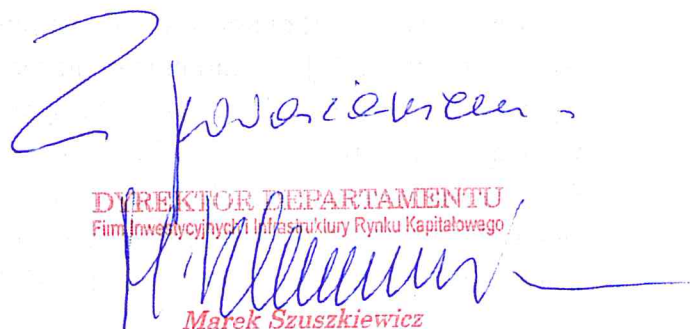 Z poważaniem
DYREKTOR DEPARTAMENTU
Firm Inwestycyjnych i Infrastruktury Rynku Kapitałowego
Marek Szuszkiewicz